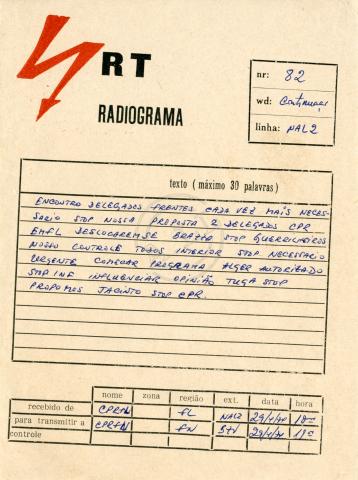 RT
RADIOGRAMA
nr: 82
wd:
linha: NAL2
texto (máximo 30 palavras)
ENCONTRO DELEGADOS FRENTES CADA VEZ MAIS NECES-
SARIO STOP NOSSA PROPOSTA 2 DELEGADOS CPR
EMFL DESLOCAREM-SE BRAZZA STOP GUERRILHEIROS
NOSSO CONTROLE TODOS INTERIOR STOP NECESSARIO
URGENTE COMEÇAR PROGRAMA ALGER AUTORIZADO
STOP INF INFLUENCIAR OPINIÃO TUGA STOP
PROPOMOS JACINTO STOP CPR.
nome zona região ext. data hora
recebido de CPRFN FL NAL2
para transmitir a CPRFN FN
controle